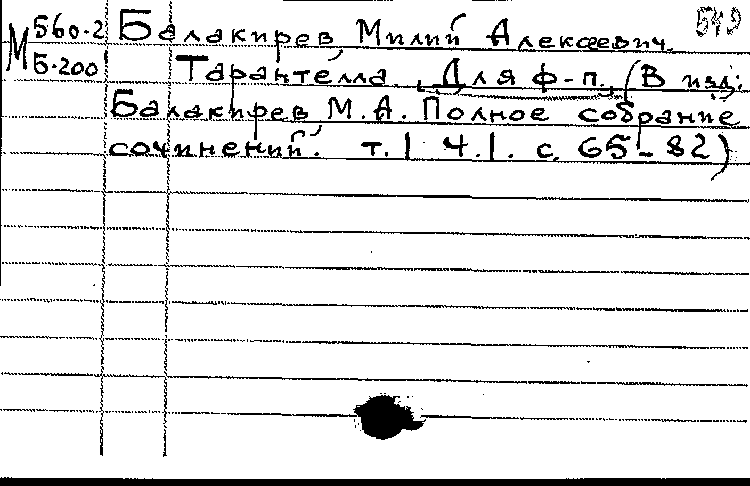 М 560-2 Балакирев, Милий Алексеевич. 549
Б-200 Тарантелла. Для ф-п. (В изд:
Балакирев М.А. Полное собрание
сочинений. т.1 ч.1. с. 65-82)